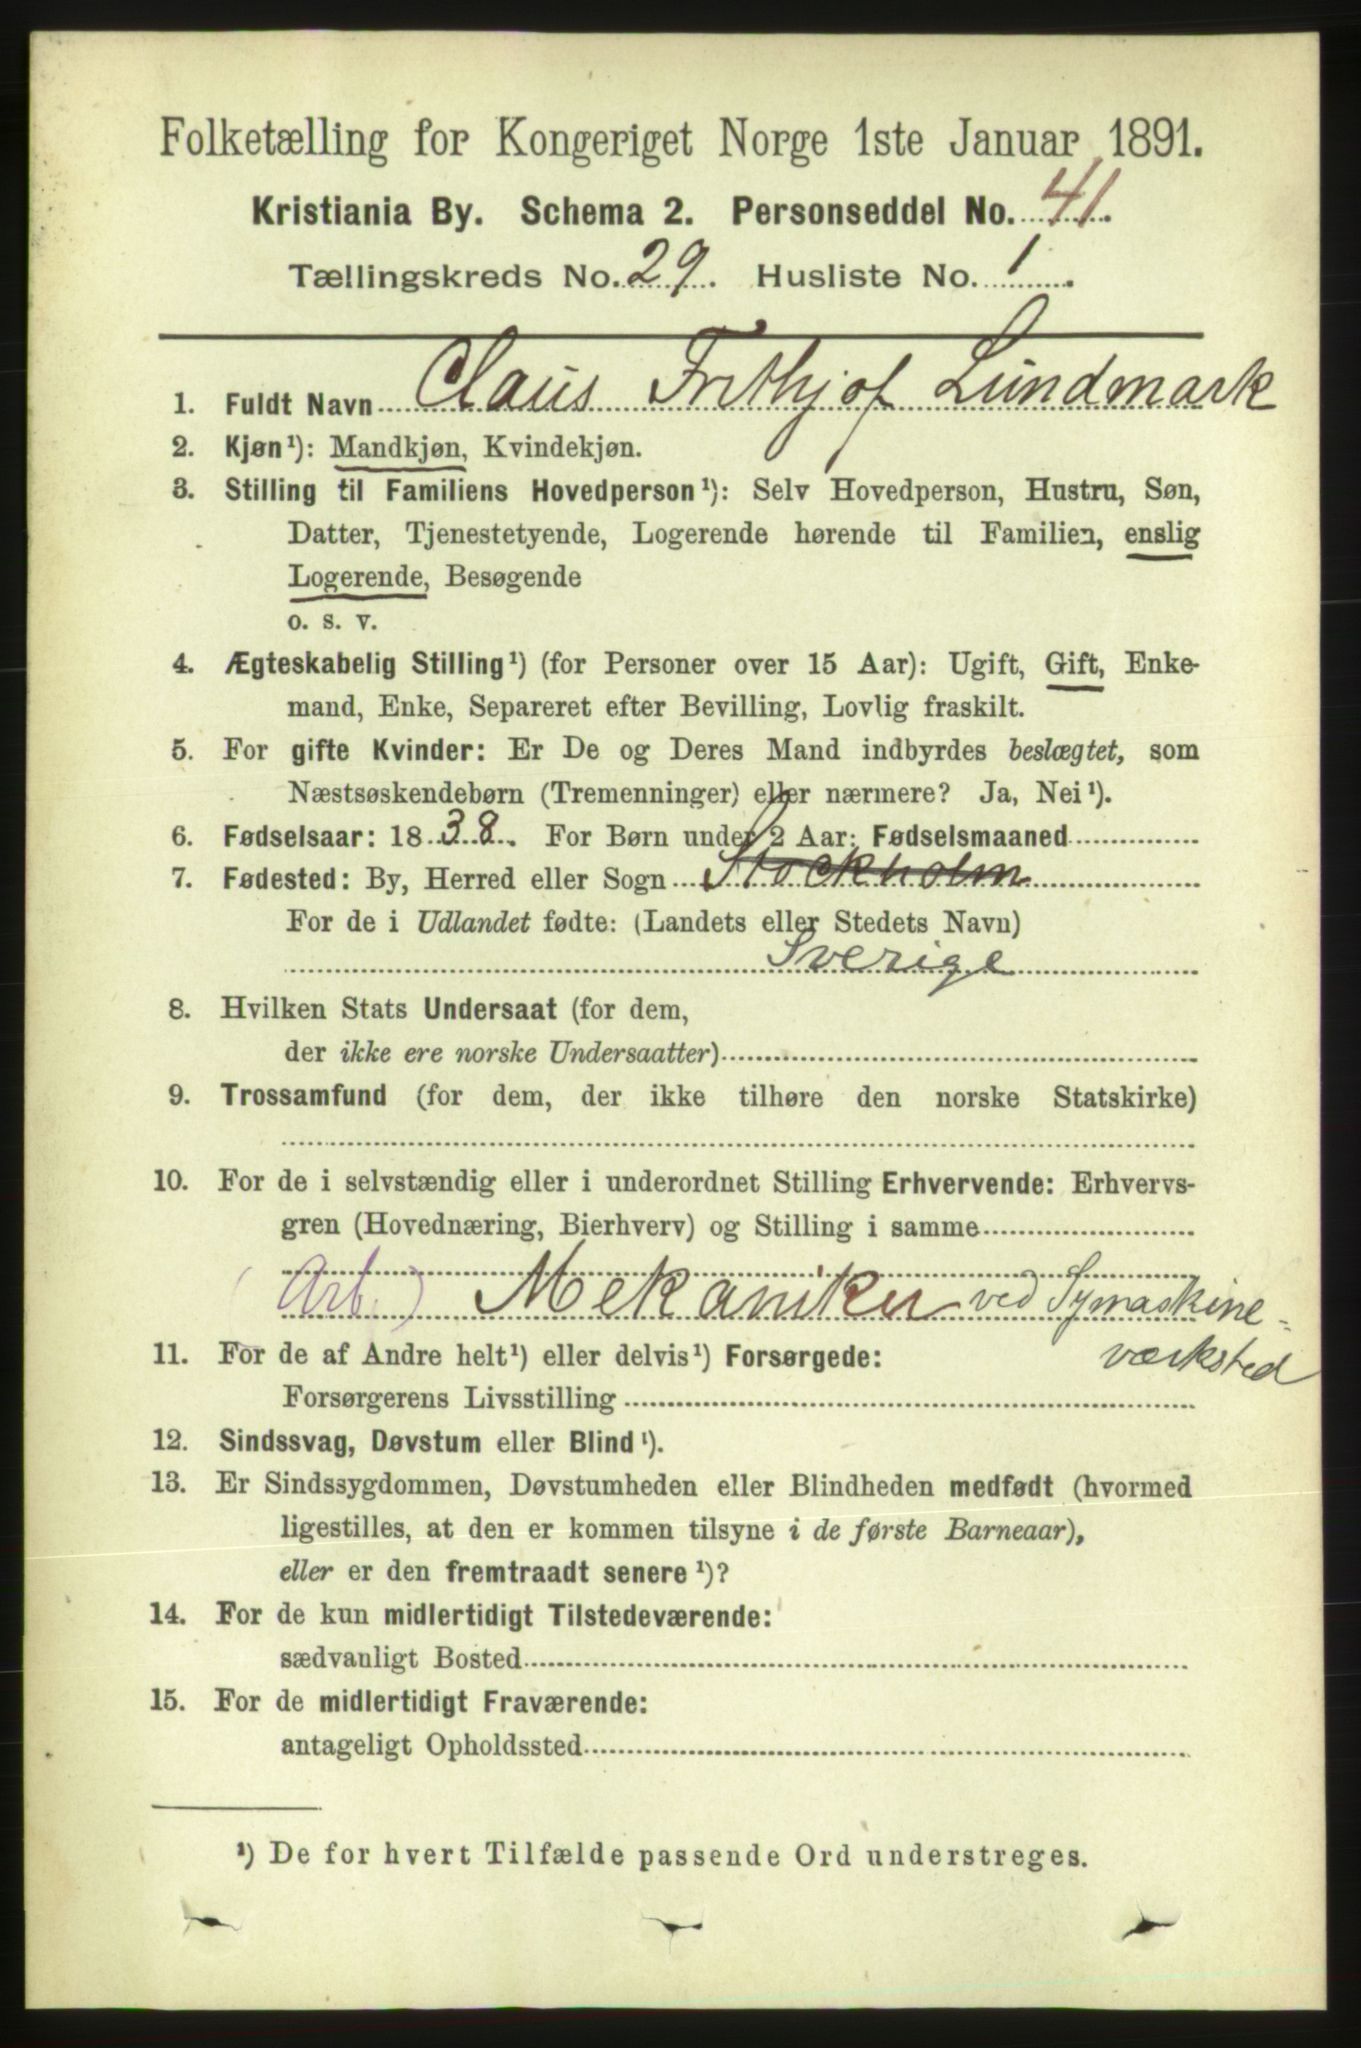 Folketælling for Kongeriget Norge 1ste Januar 1891.
Kristiania By. Schema 2. Personseddel No. 41.
Tællingskreds No. 29. Husliste No. 1.
1. Fuldt Navn Claus Frithjof Lundmark
2. Kjøn¹): Mandkjøn, Kvindekjøn.
3. Stilling til Familiens Hovedperson¹): Selv Hovedperson, Hustru, Søn,
Datter, Tjenestetyende, Logerende hørende til Familien, enslig
Logerende, Besøgende
o. s. v.
4. Ægteskabelig Stilling¹) (for Personer over 15 Aar): Ugift, Gift, Enke-
mand, Enke, Separeret efter Bevilling, Lovlig fraskilt.
5. For gifte Kvinder: Er De og Deres Mand indbyrdes beslægtet, som
Næstsøskendebørn (Tremenninger) eller nærmere? Ja, Nei¹).
6. Fødselsaar: 1838. For Børn under 2 Aar: Fødselsmaaned
7. Fødested: By, Herred eller Sogn Stockholm
For de i Udlandet fødte: (Landets eller Stedets Navn)
Sverige
8. Hvilken Stats Undersaat (for dem,
der ikke ere norske Undersaatter)
9. Trossamfund (for dem, der ikke tilhøre den norske Statskirke)
10. For de i selvstændig eller i underordnet Stilling Erhvervende: Erhvervs-
gren (Hovednæring, Bierhverv) og Stilling i samme
(Arb.) Mekaniker ved Symaskine-
værksted
11. For de af Andre helt¹) eller delvis¹) Forsørgede:
Forsørgerens Livsstilling
12. Sindssvag, Døvstum eller Blind¹).
13. Er Sindssygdommen, Døvstumheden eller Blindheden medfødt (hvormed
ligestilles, at den er kommen tilsyne i de første Barneaar),
eller er den fremtraadt senere¹)?
14. For de kun midlertidigt Tilstedeværende:
sædvanligt Bosted
15. For de midlertidigt Fraværende:
antageligt Opholdssted
¹) De for hvert Tilfælde passende Ord understreges.